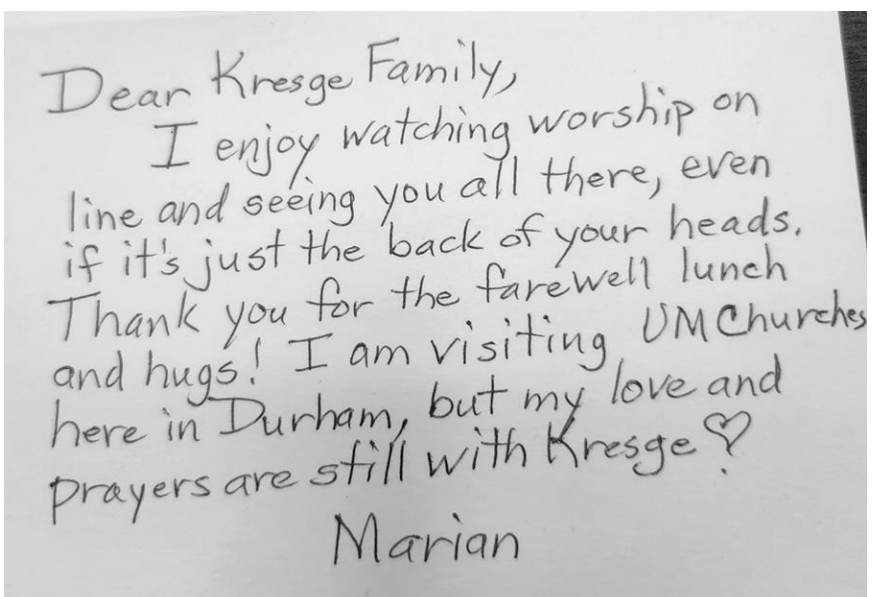 Dear Kresge Family,
I enjoy watching worship on
line and seeing you all there, even
if it's just the back of your heads.
Thank you for the farewell lunch
and hugs! I am visiting UMChurches
here in Durham, but my love and
prayers are still with Kresge ♡
Marian